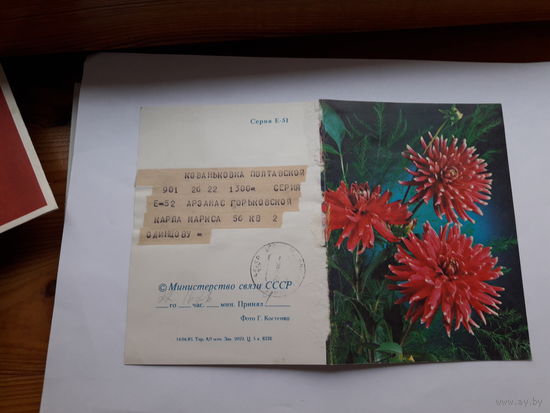 Серия Е-51
КОВАНЬКОВКА ПОЛТАВСКОЙ
901 26 22 1300= СЕРИЯ
Е=52 АРЗАМАС ГОРЬКОВСКОЙ
КАРЛА МАРКСА 56 КВ 2
ОДИНЦОВУ =
© Министерство связи СССР
го час. мин. Принял
Фото Г. Костенко
www.ay.by